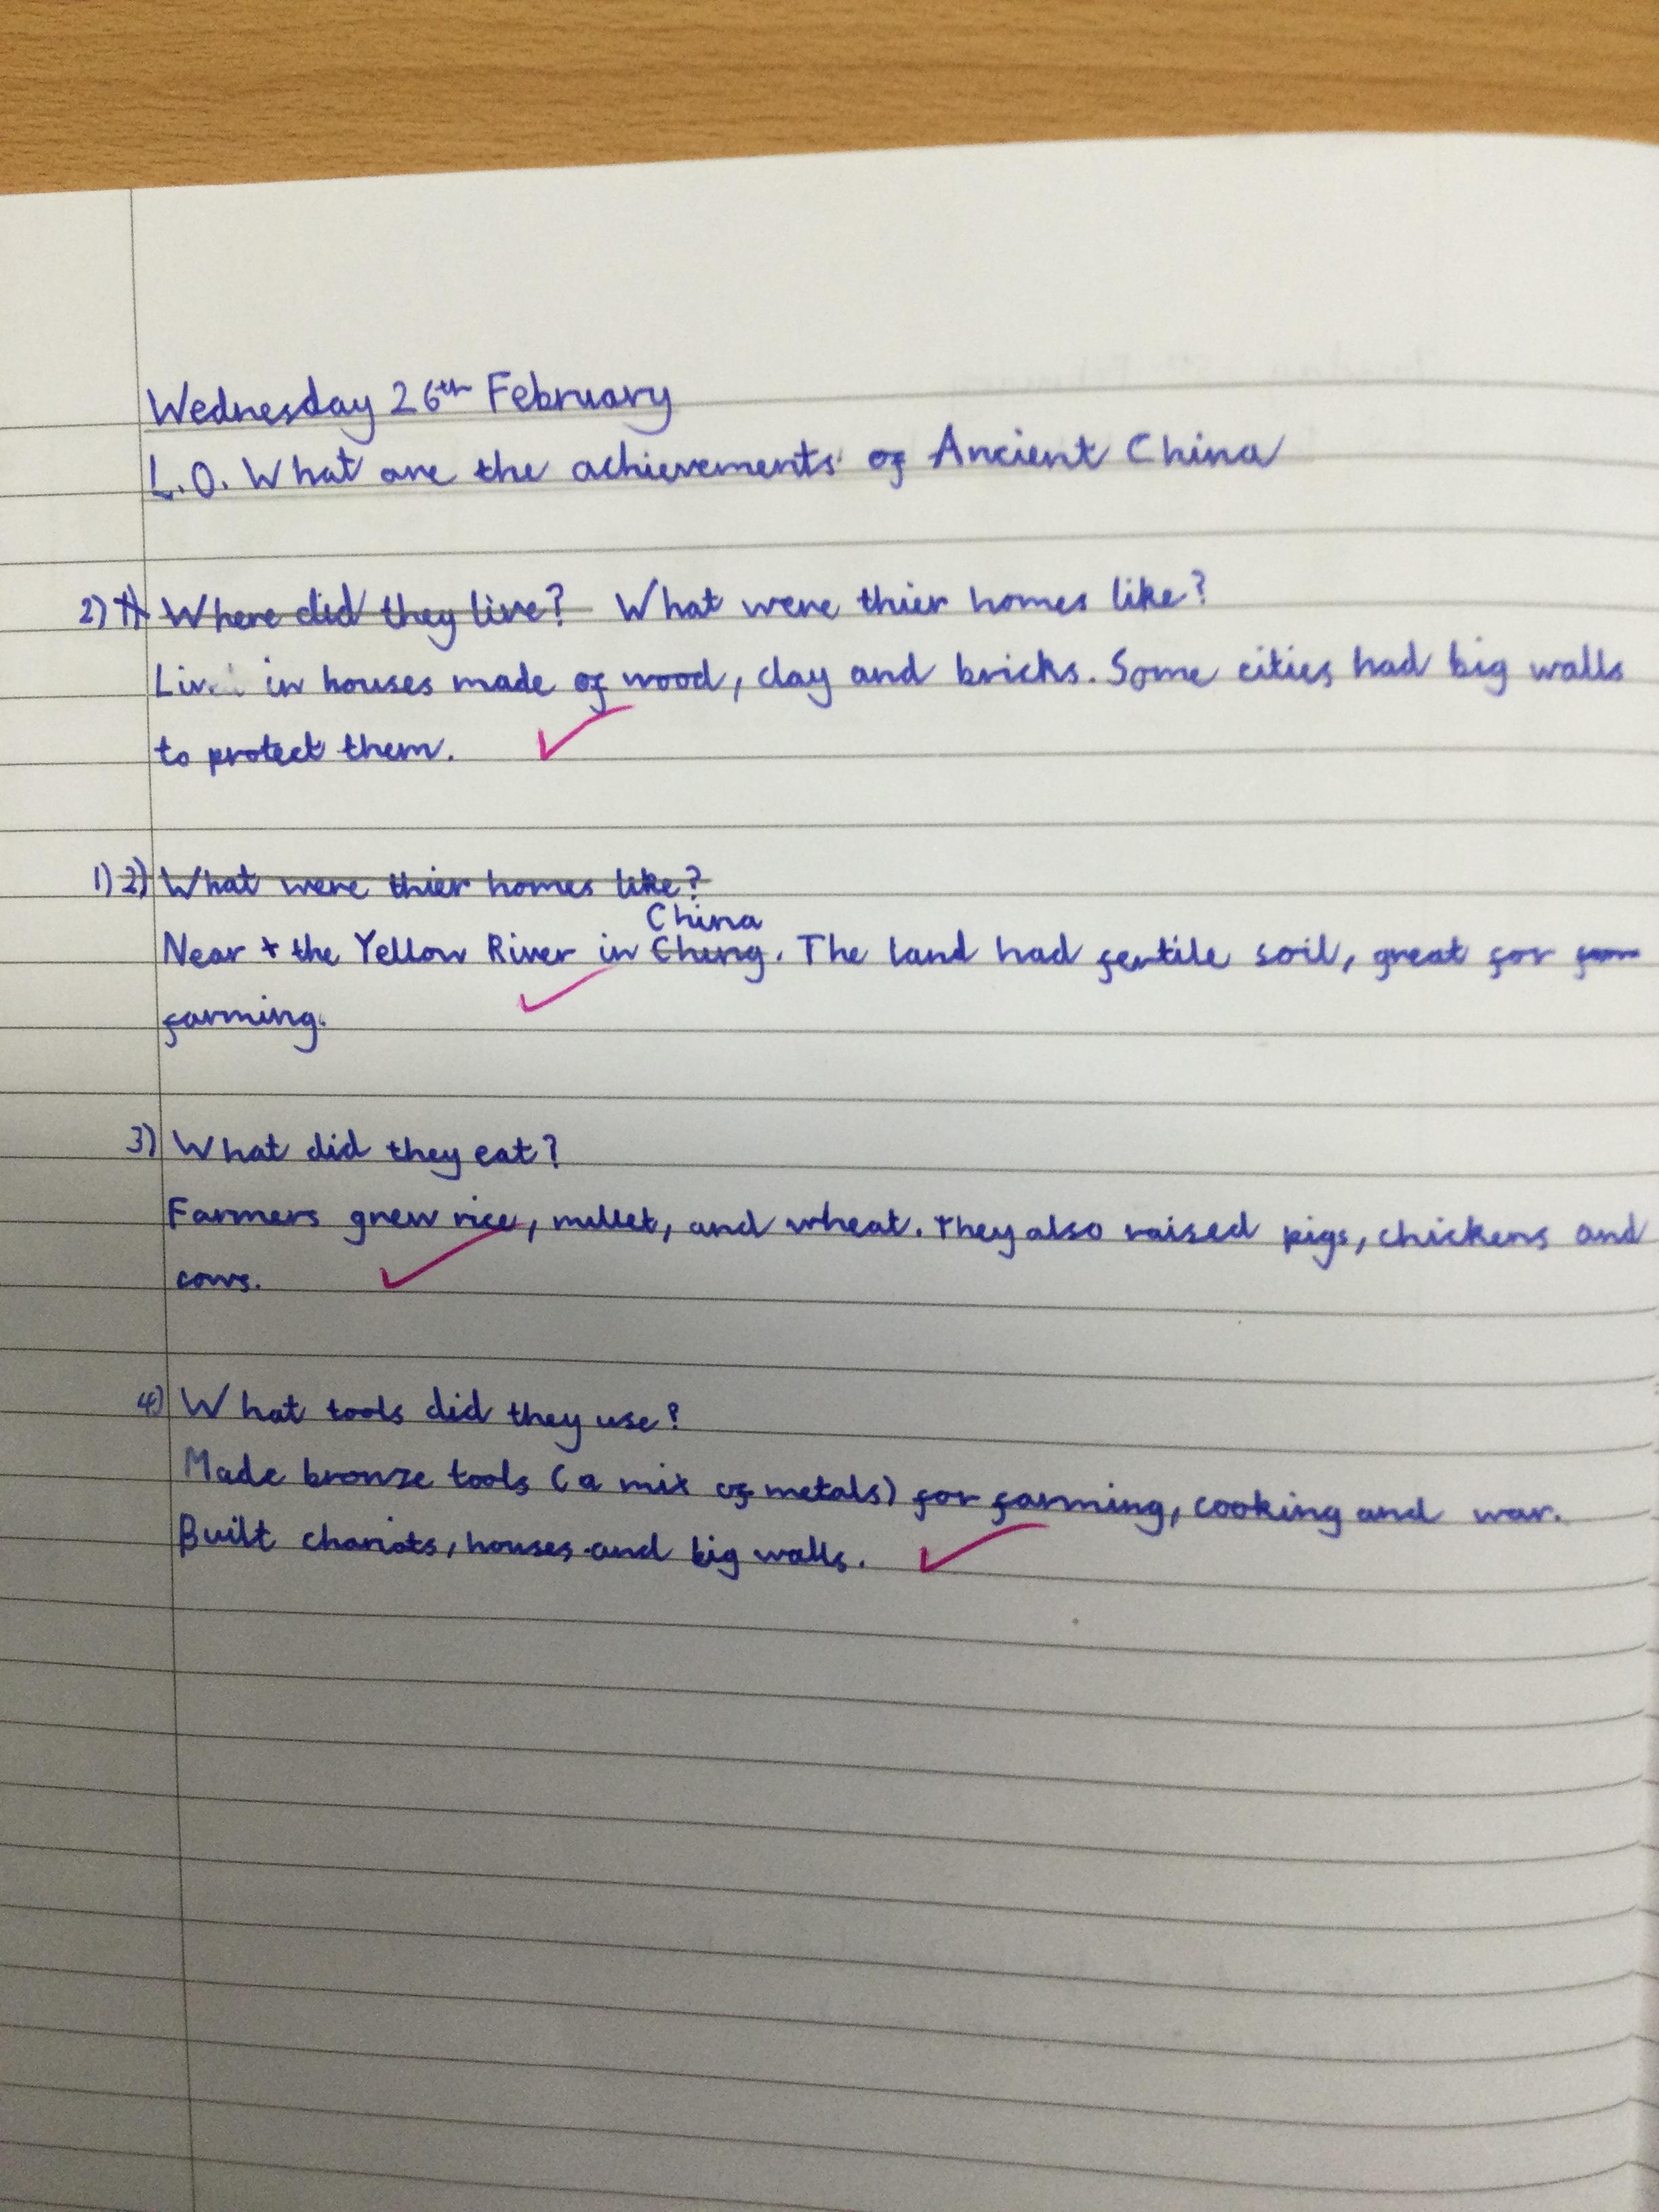 Wednesday 26th February
L.O. What are the achievements of Ancient China
2) 1) Where did they live? What were thier homes like?
in houses made of wood, clay and bricks. Some cities had big walls
to protect them.
1) 2) What were thier homes like?
China
Near t the Yellow River in Chung. The land had fertile soil, great for farm
farming.
3) What did they eat?
Farmers grew rice, millet, and wheat. They also raised pigs, chickens and
cows.
4) What tools did they use?
Made bronze tools (a mix of metals) for farming, cooking and war.
Built chariots, houses and big walls.